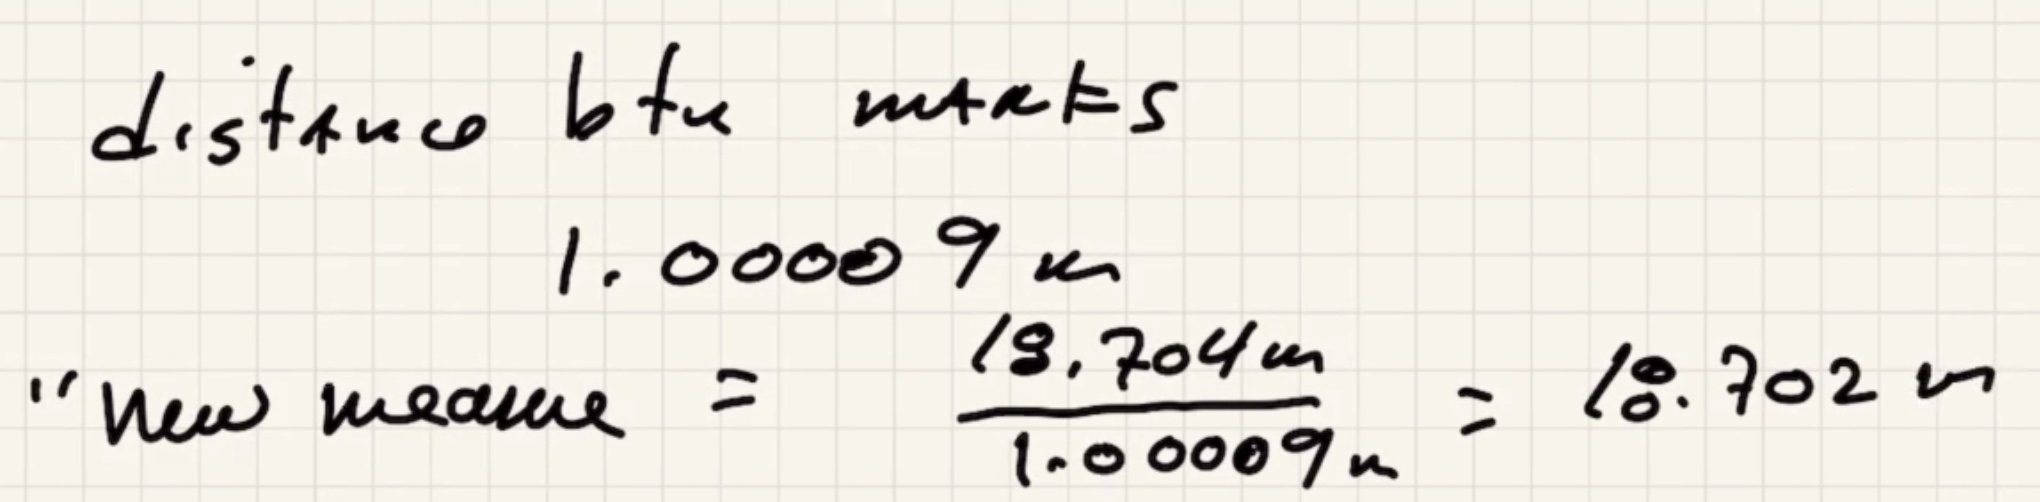 distance btw marks
1.00009 m
"New measure = 18.704m / 1.00009 m = 18.702 m